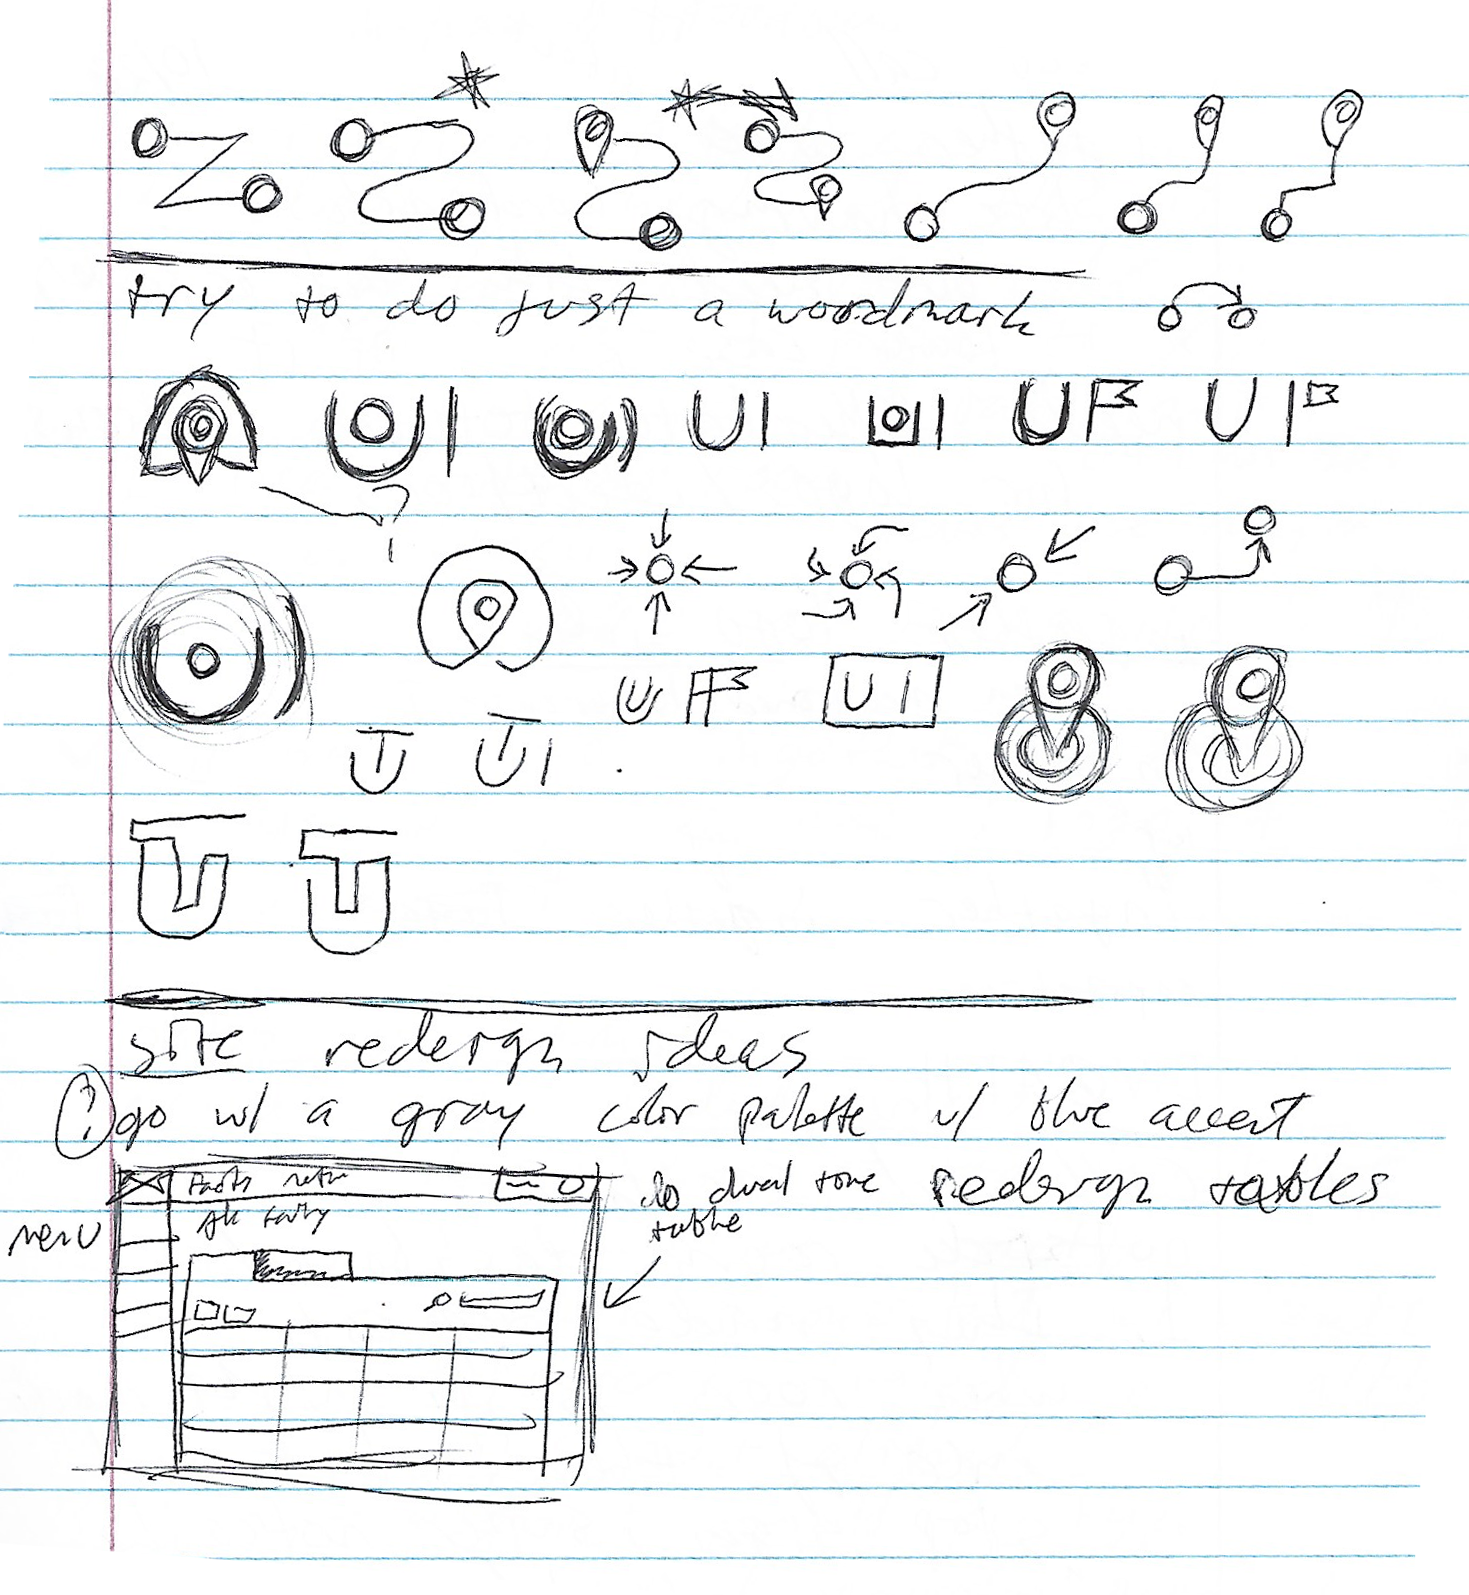 try to do just a wordmark
UI
UI
UF
UI
?
UF
UI
site redesign ideas
? go w/ a gray color palette w/ blue accent
do dual tone redesign tables
table
menu